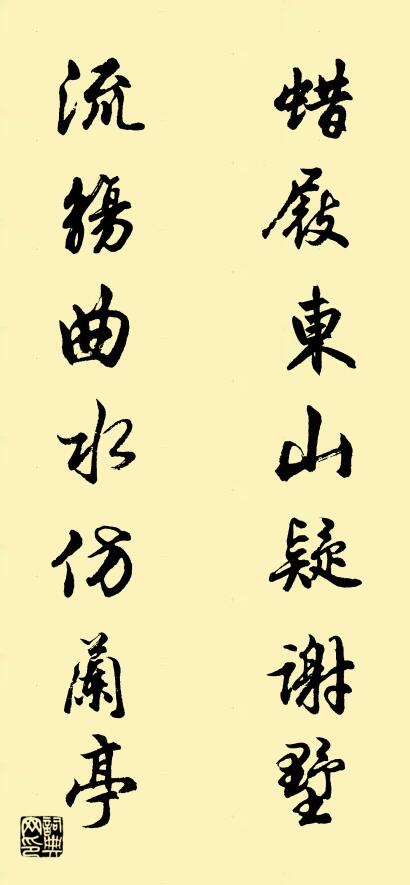 蜡屐東山疑謝墅
流觴曲水仿蘭亭
詞典网印